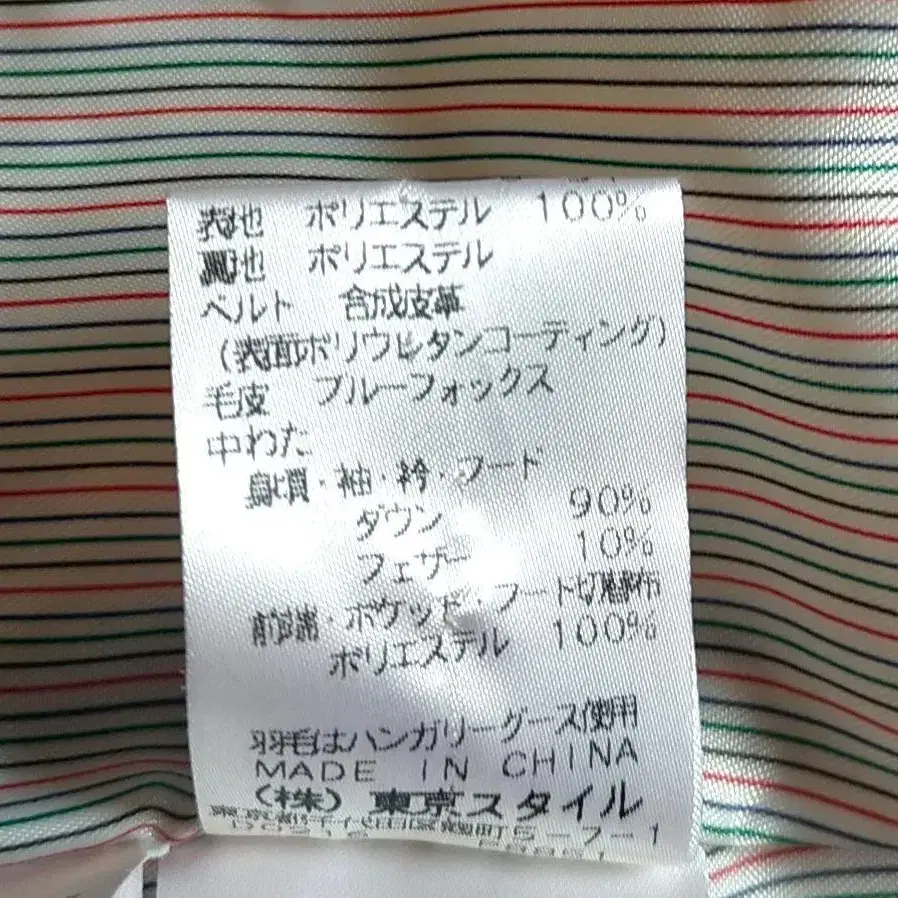 表地 ポリエステル 100%
裏地 ポリエステル
ベルト 合成皮革
(表面ポリウレタンコーティング)
毛皮 ブルーフォックス
中わた
身頃・袖・衿・フード
ダウン 90%
フェザー 10%
前端・ポケット・フード切替布
ポリエステル 100%
羽毛はハンガリーグース使用
MADE IN CHINA
(株) 東京スタイル
東京都千代田区麹町5-7-1